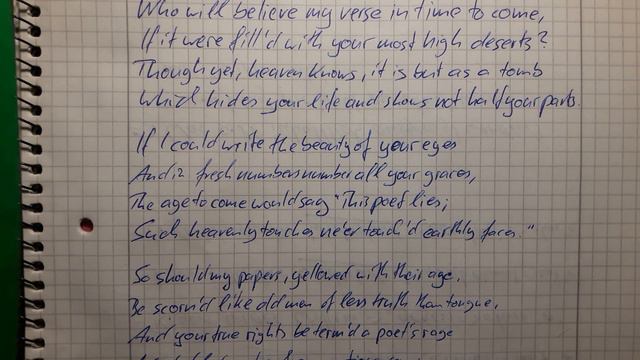 Who will believe my verse in time to come,
If it were fill'd with your most high deserts?
Though yet, heaven knows, it is but as a tomb
Which hides your life and shows not half your parts.
If I could write the beauty of your eyes
And in fresh numbers number all your graces,
The age to come would say "This poet lies;
Such heavenly touches ne'er touch'd earthly faces."
So should my papers, yellowed with their age,
Be scorn'd like old men of less truth than tongue,
And your true rights be term'd a poet's rage